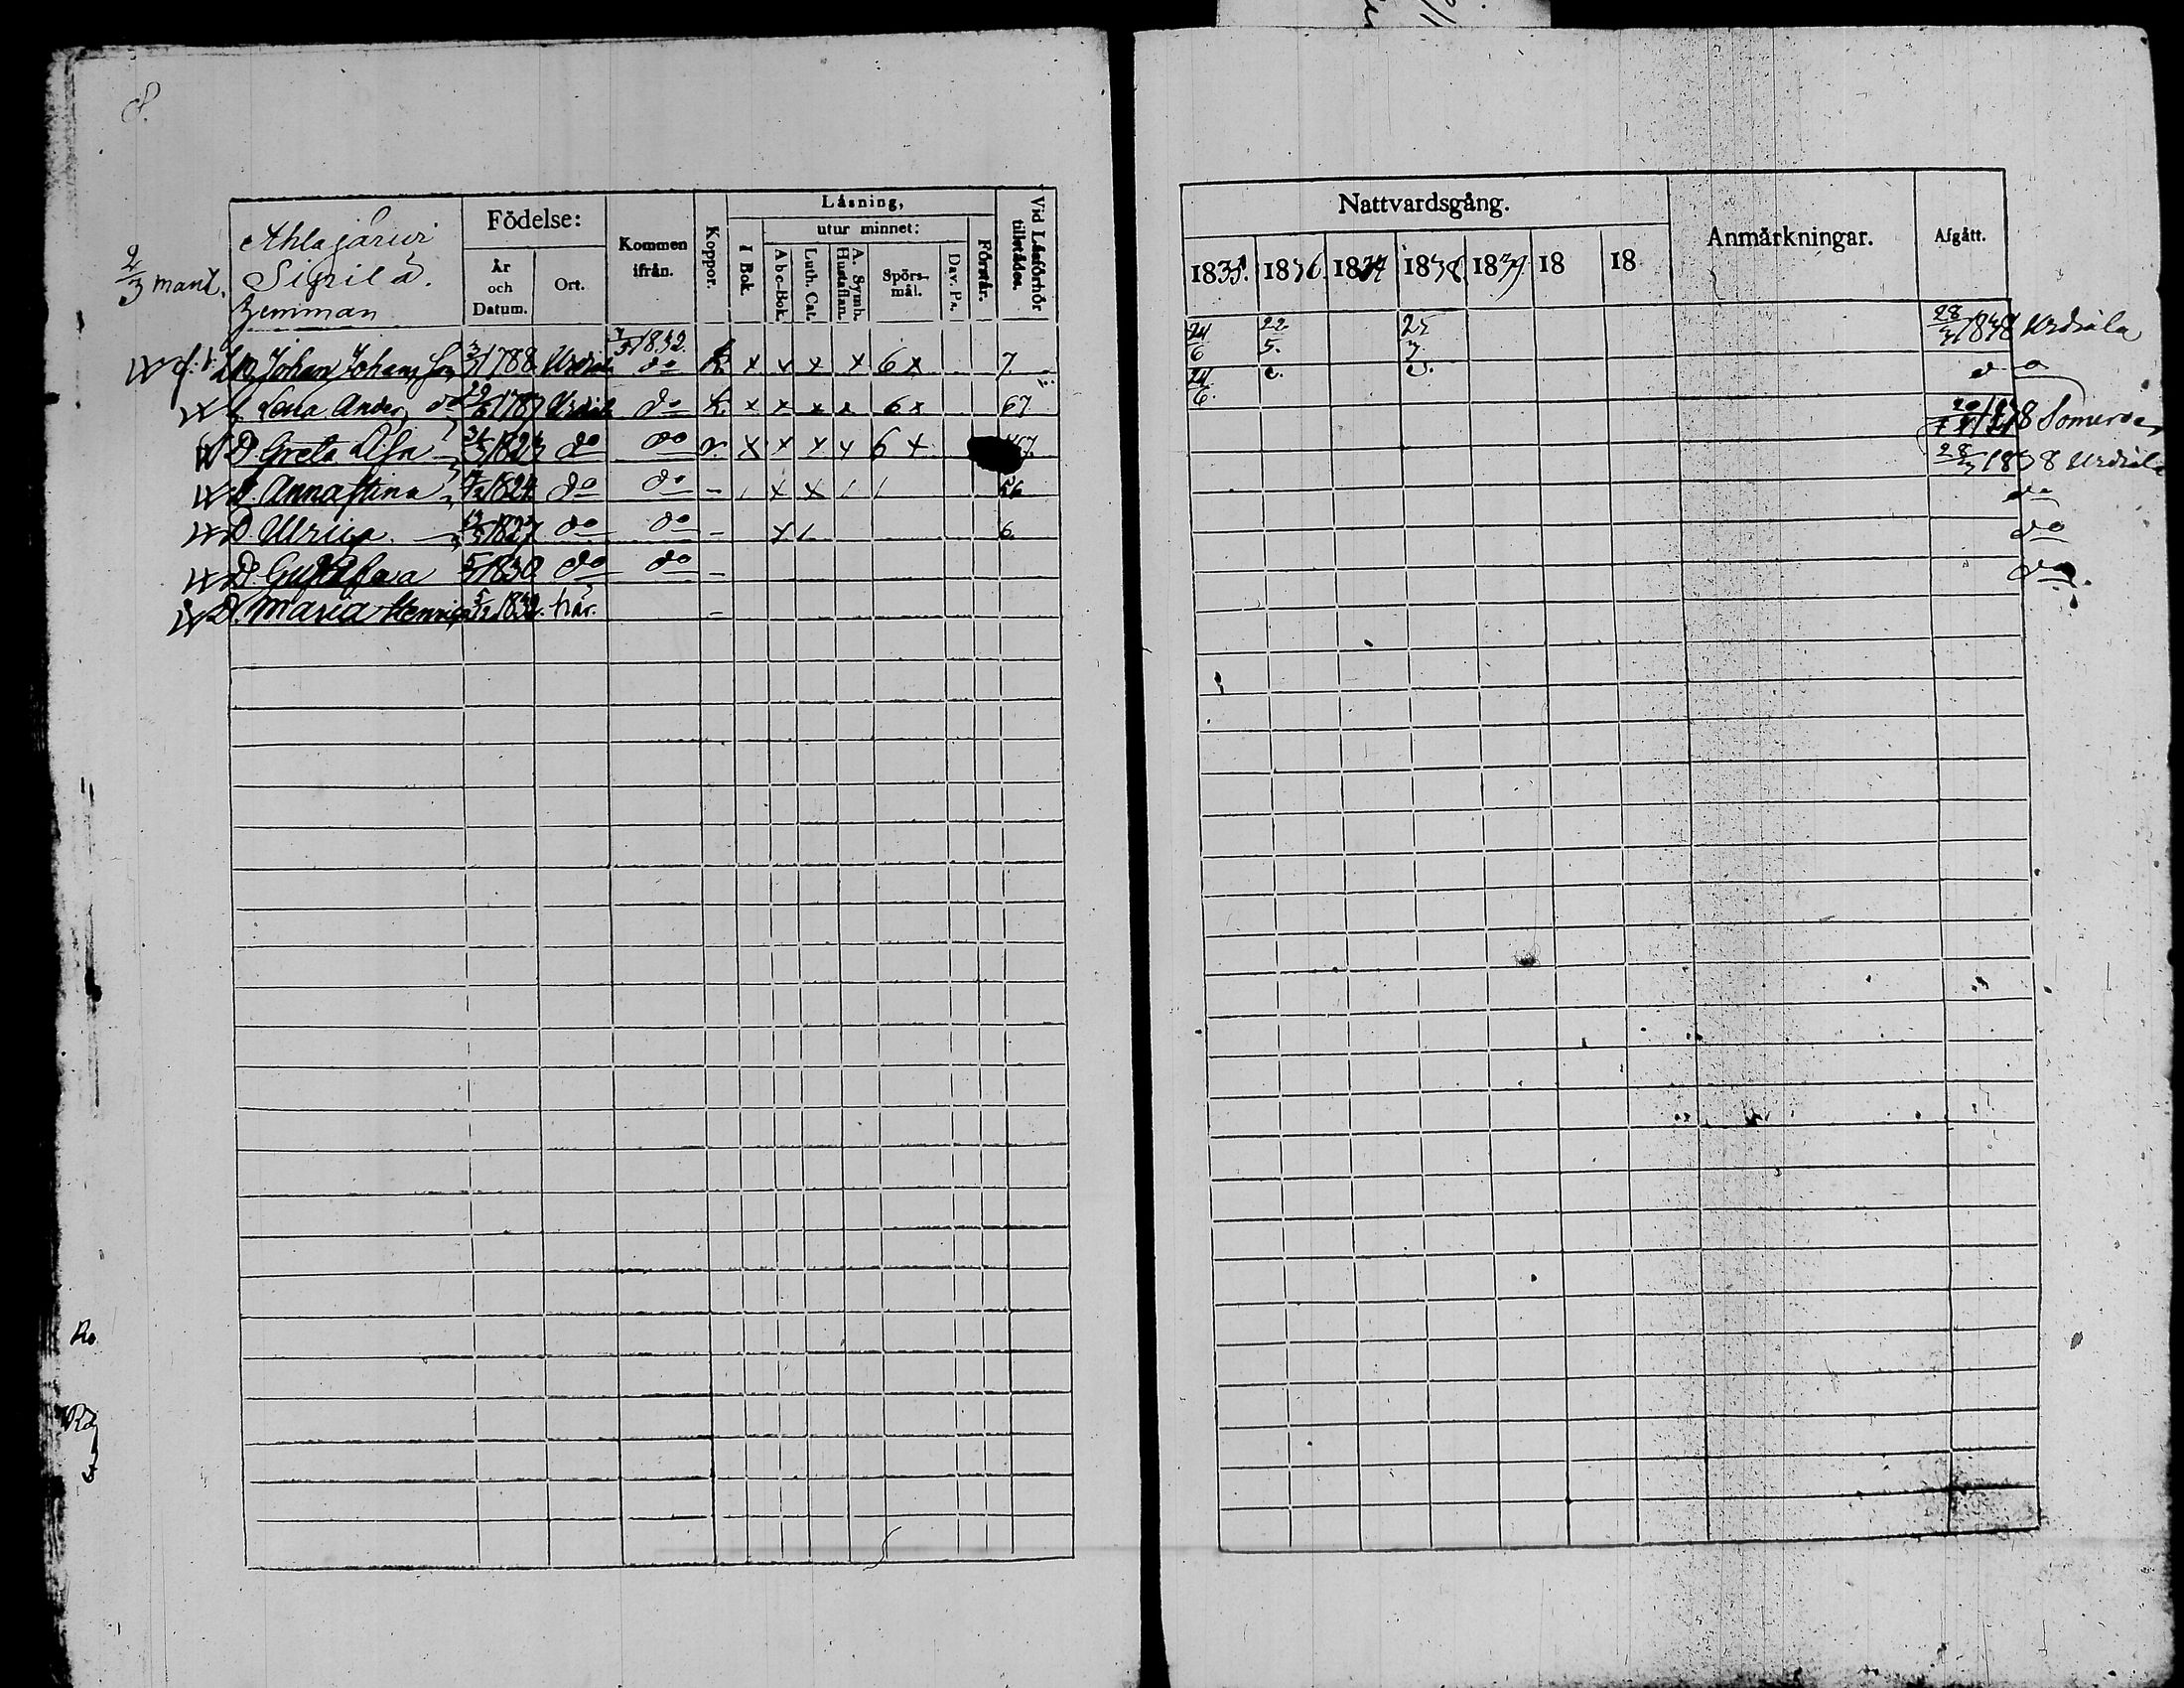 8.
2/3 mant.
Ahlajärwi
Sipilä.
Hemman
Födelse:
År
och
Datum.
Ort.
Kommen
ifrån.
Koppor.
Läsning,
I Bok.
utur minnet:
Abc-Bok.
Luth. Cat.
A. Symb.
Hustaflan.
Spörs-
mål.
Dav. Ps.
Förstår.
Vid Läsförhör
tillstädes.
Johan Johans 1788 Urdiala 1832. do K. x x x x 6 x 7.
Lena Anders do 1787 Urdiala do K. x x x x 6 x 67
D. Greta Lisa 1823 do do v. x x x x 6 x 67.
D. Anna Stina 1824 do do - / x x / / 56
D. Ulrica 1827 do do - x / 6
D. Gustafva 5/1830 do do -
D. Maria Henrica 1832. här. -
Ro
Nattvardsgång.
1835. 1836. 1837 1838. 1839. 18 18
Anmärkningar.
Afgått.
24/6 22/5. 25/3. 28/3 1838 Urdiala
24/6. d o
20/ 1838 Somero
28/3 1838 Urdiala
do
do
do